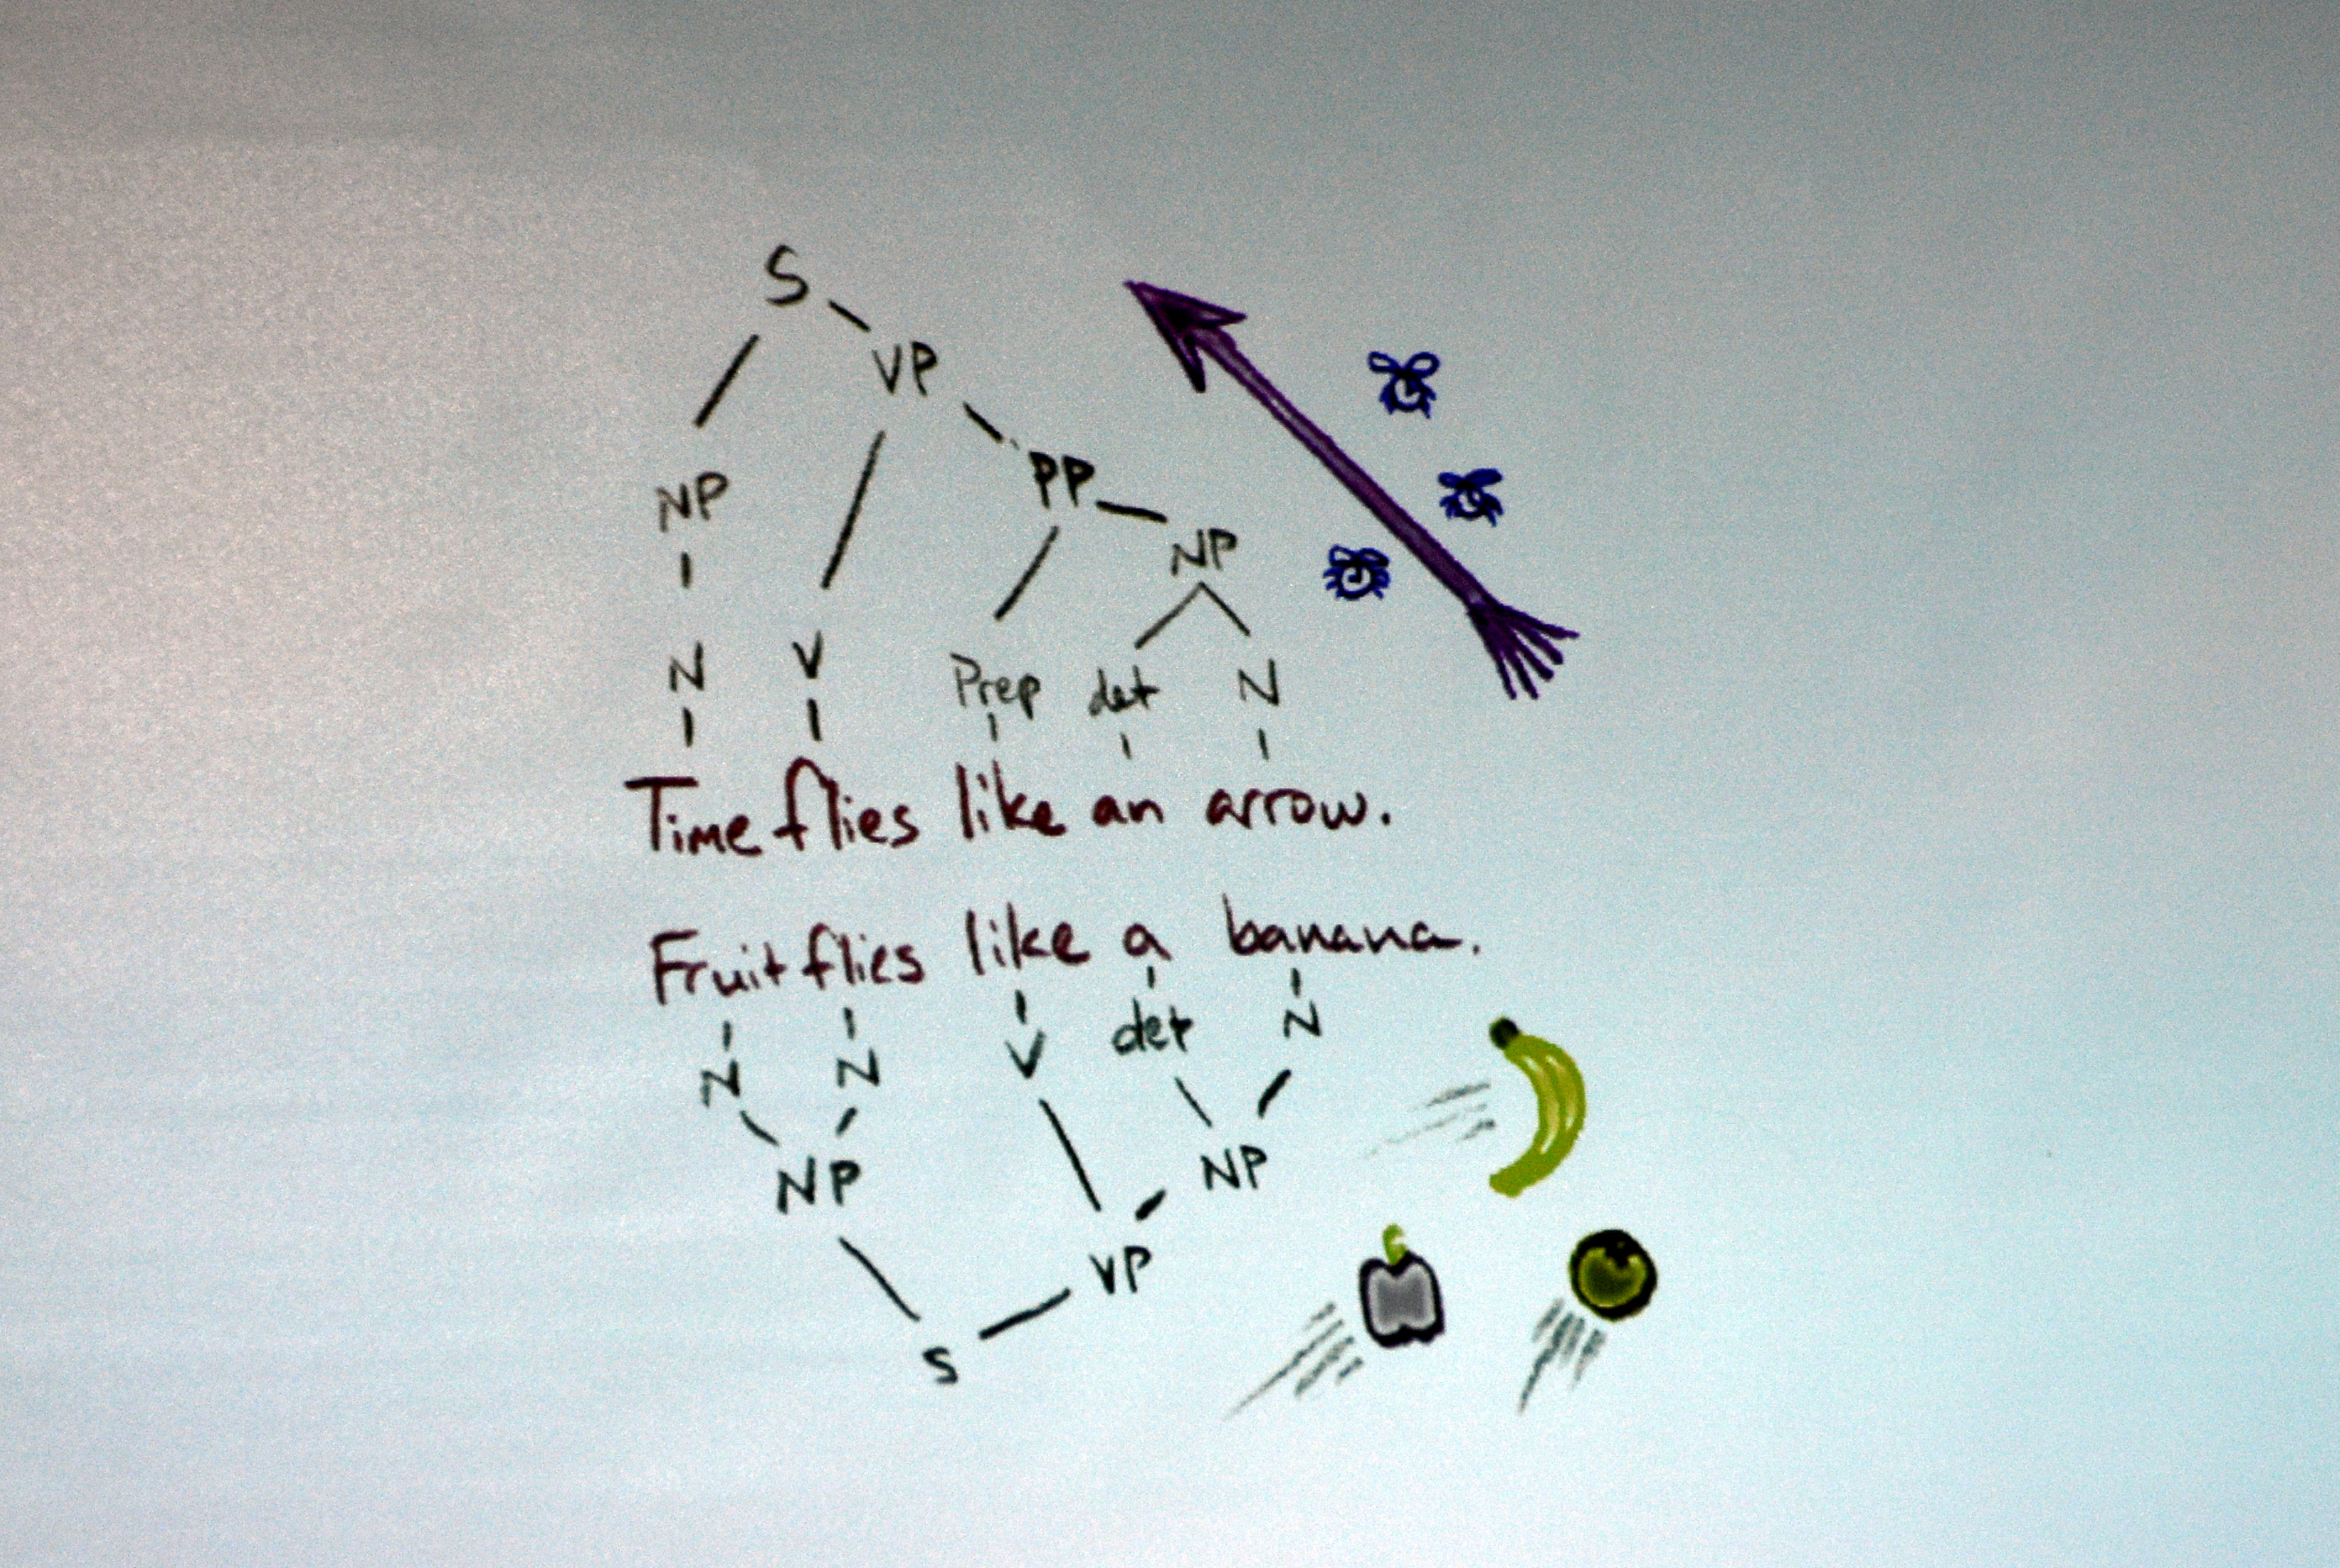 S
VP
PP
NP
NP
N V Prep det N
Time flies like an arrow.
Fruit flies like a banana.
N N V det N
NP NP
VP
S